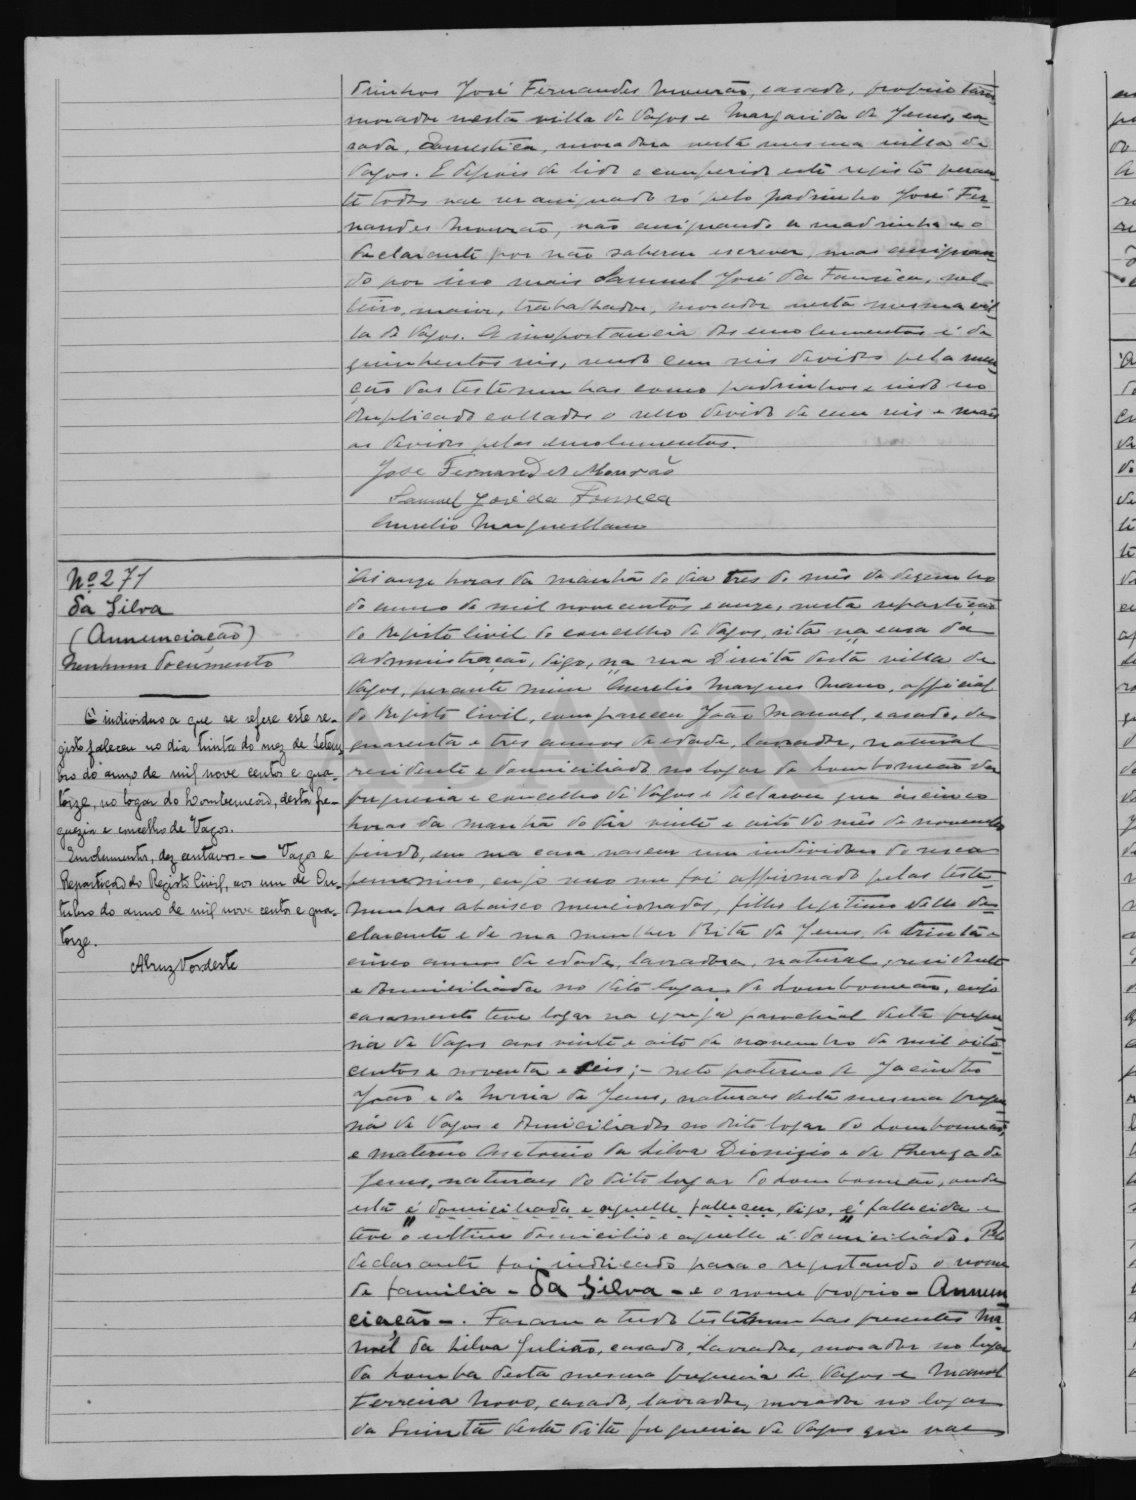 drinhos José Fernandes Mourão, casado, proprietario
morador nesta villa de Vagos e Margarida de Jesus, ca-
sada, domestica, moradora nesta mesma villa de
Vagos. E depois de lido e conferido este registo peran-
te todos vae ser assignado só pelo padrinho José Fer-
nandes Mourão, não assignando a madrinha e o
declarante por não saberem escrever, mas assignan-
do por isso mais Samuel José da Fonseca, sol-
teiro, maior, trabalhador, morador nesta mesma vil-
la de Vagos. A importancia dos emolumentos é de
quinhentos reis, sendo cem reis devidos pela men-
ção das testemunhas como padrinhos e indo no
duplicado collados o sello devido de cem reis e mais
os devidos pelos emolumentos.
José Fernandes Mourão
Samuel José da Fonseca
Aurelio Marques Mano
Nº 271
da Silva
(Annunciação)
Nenhum documento
O individuo a que se refere este re-
gisto faleceu no dia trinta do mez de Setem-
bro do anno de mil nove centos e qua-
torze, no logar do Lombomeão, desta fre-
guezia e concelho de Vagos.
Emolumentos, dez centavos. — Vagos e
Repartição do Registo Civil, aos um de Ou-
tubro do anno de mil nove centos e qua-
torze.
As onze horas da manhã do dia tres do mês de dezembro
do anno de mil novecentos e onze, nesta repartição
do Registo civil do concelho de Vagos, sita na casa da
administração, digo, na rua Direita desta villa de
Vagos, perante mim Aurelio Marques Mano, official
do Registo civil, compareceu João Manuel, casado, de
quarenta e tres annos de edade, lavrador, natural
residente e domiciliado no logar do Lombomeão da
freguesia e concelho de Vagos e declarou que ás cinco
horas da manhã do dia vinte e oito do mês de novembro
findo, em sua casa nasceu um individuo do sexo
femenino, cujo sexo me foi affirmado pelas teste-
munhas abaixo mencionadas, filho legitimo delle de-
clarante e de sua mulher Rita de Jesus, de trinta e
cinco annos de edade, lavradora, natural, residente
e domiciliada no dito logar do Lombomeão, cujo
casamento teve logar na egreja parochial desta fregue-
sia de Vagos aos vinte e oito de novembro de mil oito
centos e noventa e seis; - neto paterno de Jacintho
João e de Maria de Jesus, naturaes desta mesma fregue-
sia de Vagos e domiciliados no dito logar do Lombomeão,
e materno Antonio da Silva Dionizio e de Thereza de
Jesus, naturaes do dito logar do Lombomeão, onde
esta é domiciliada e aquelle falleceu, digo, é fallecida e
teve o ultimo domicilio e aquelle é domiciliado. Pelo
declarante foi indicado para o registando o nome
de familia - da Silva - e o nome proprio - Annun-
ciação -. Foram a tudo testemunhas presentes Ma-
nuel da Silva Julião, casado, lavrador, morador no logar
da Lomba desta mesma freguesia de Vagos e Manuel
Ferreira Novo, casado, lavrador, morador no logar
da Quintã desta dita freguesia de Vagos que vae